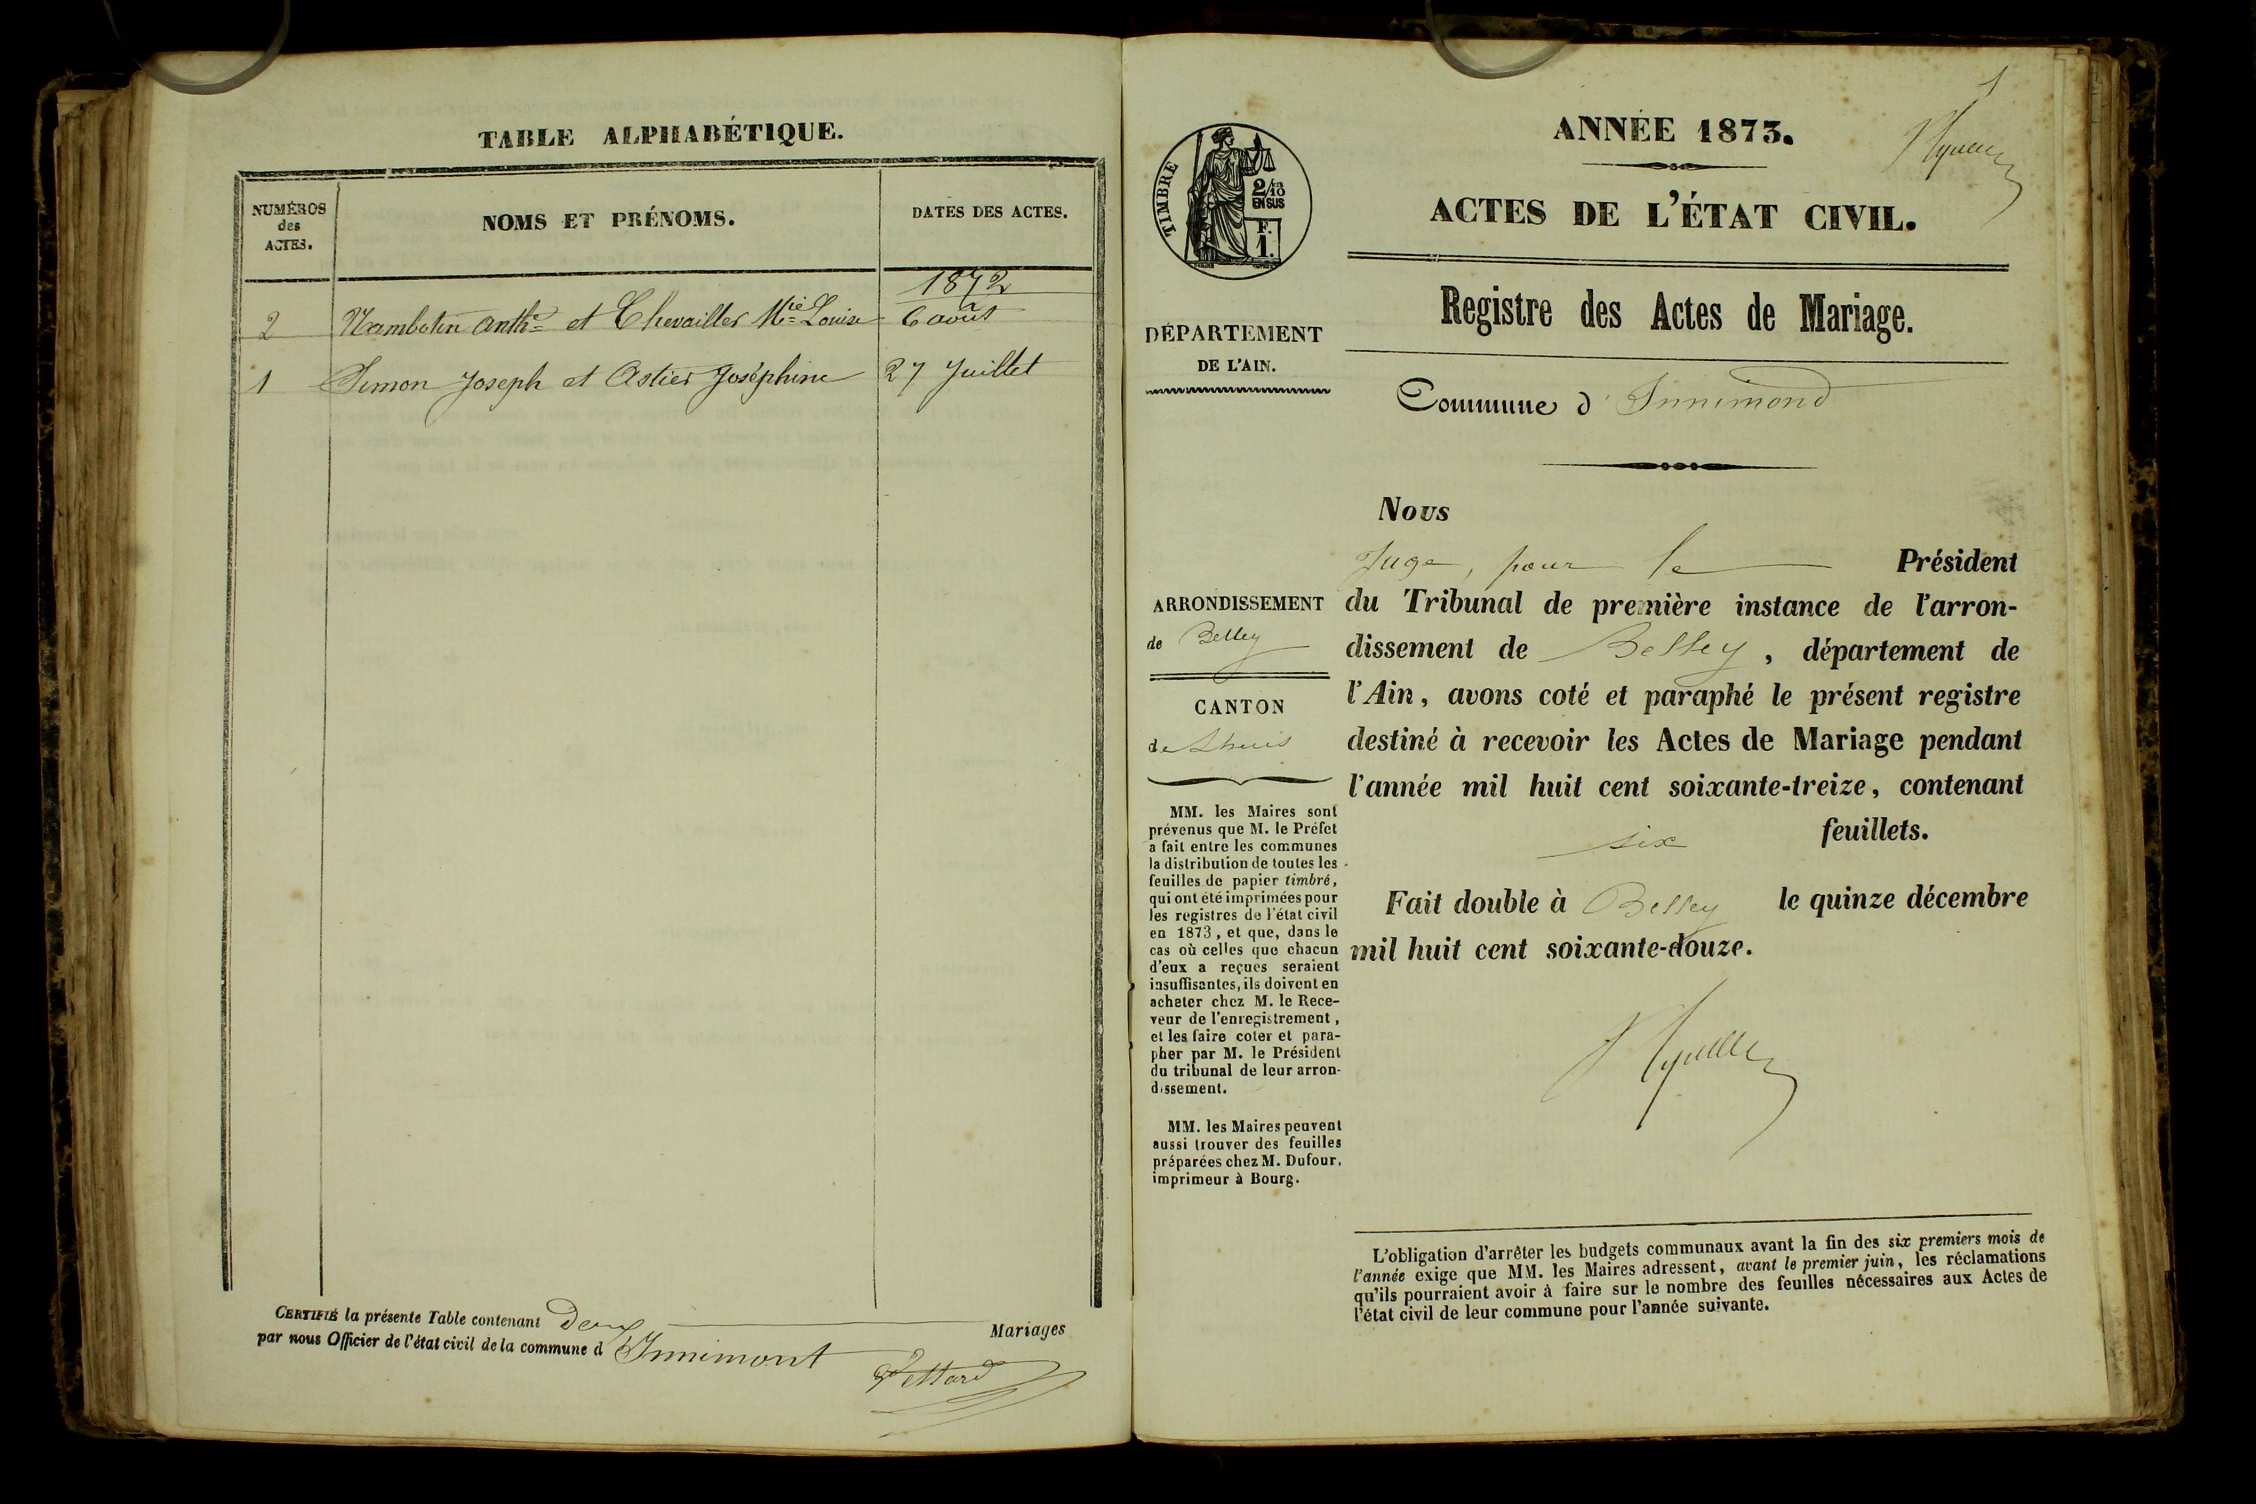 TABLE ALPHABÉTIQUE.
NUMÉROS
des
ACTES.
NOMS ET PRÉNOMS.
DATES DES ACTES.
1872
2 Nambotin Anthe et Chevailler Mie Louise 6 août
1 Simon Joseph et Astier Joséphine 27 Juillet
CERTIFIÉ la présente Table contenant Deux Mariages
par nous Officier de l'état civil de la commune d'Innimont
1
ANNÉE 1873.
ACTES DE L'ÉTAT CIVIL.
Registre des Actes de Mariage.
Commune d'Innimond
TIMBRE
2/10
EN SUS
F.
1.
DÉPARTEMENT
DE L'AIN.
ARRONDISSEMENT
de Belley
CANTON
de Lhuis
MM. les Maires sont
prévenus que M. le Préfet
a fait entre les communes
la distribution de toutes les
feuilles de papier timbré,
qui ont été imprimées pour
les registres de l'état civil
en 1873, et que, dans le
cas où celles que chacun
d'eux a reçues seraient
insuffisantes, ils doivent en
acheter chez M. le Rece-
veur de l'enregistrement,
et les faire coter et para-
pher par M. le Président
du tribunal de leur arron-
dissement.
MM. les Maires peuvent
aussi trouver des feuilles
préparées chez M. Dufour,
imprimeur à Bourg.
Nous
Juge, pour le Président
du Tribunal de première instance de l'arron-
dissement de Belley, département de
l'Ain, avons coté et paraphé le présent registre
destiné à recevoir les Actes de Mariage pendant
l'année mil huit cent soixante-treize, contenant
six feuillets.
Fait double à Belley le quinze décembre
mil huit cent soixante-douze.
L'obligation d'arrêter les budgets communaux avant la fin des six premiers mois de
l'année exige que MM. les Maires adressent, avant le premier juin, les réclamations
qu'ils pourraient avoir à faire sur le nombre des feuilles nécessaires aux Actes de
l'état civil de leur commune pour l'année suivante.